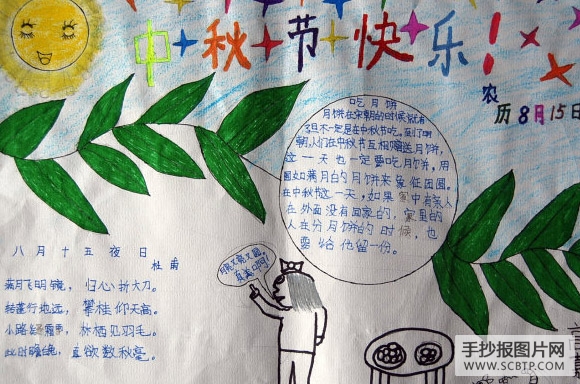 中秋节快乐！
农
历8月15日
吃月饼
月饼在宋朝的时候就有
了但不一定是在中秋节吃。到了明
朝,人们在中秋节互相赠送月饼,
这一天也一定要吃月饼,用
圆如满月白的月饼来象征团圆。
在中秋节这一天,如果家中有亲人
在外面没有回家的,家里的
人在分月饼的时候,也
要给他留一份。
八月十五夜日
杜甫
满月飞明镜,归心折大刀。
转蓬行地远,攀桂仰天高。
水路 霜雪,林栖见羽毛。
此时瞻白兔,直欲数秋毫。
真美啊!
手抄报图片网
WWW.SCBTP.COM